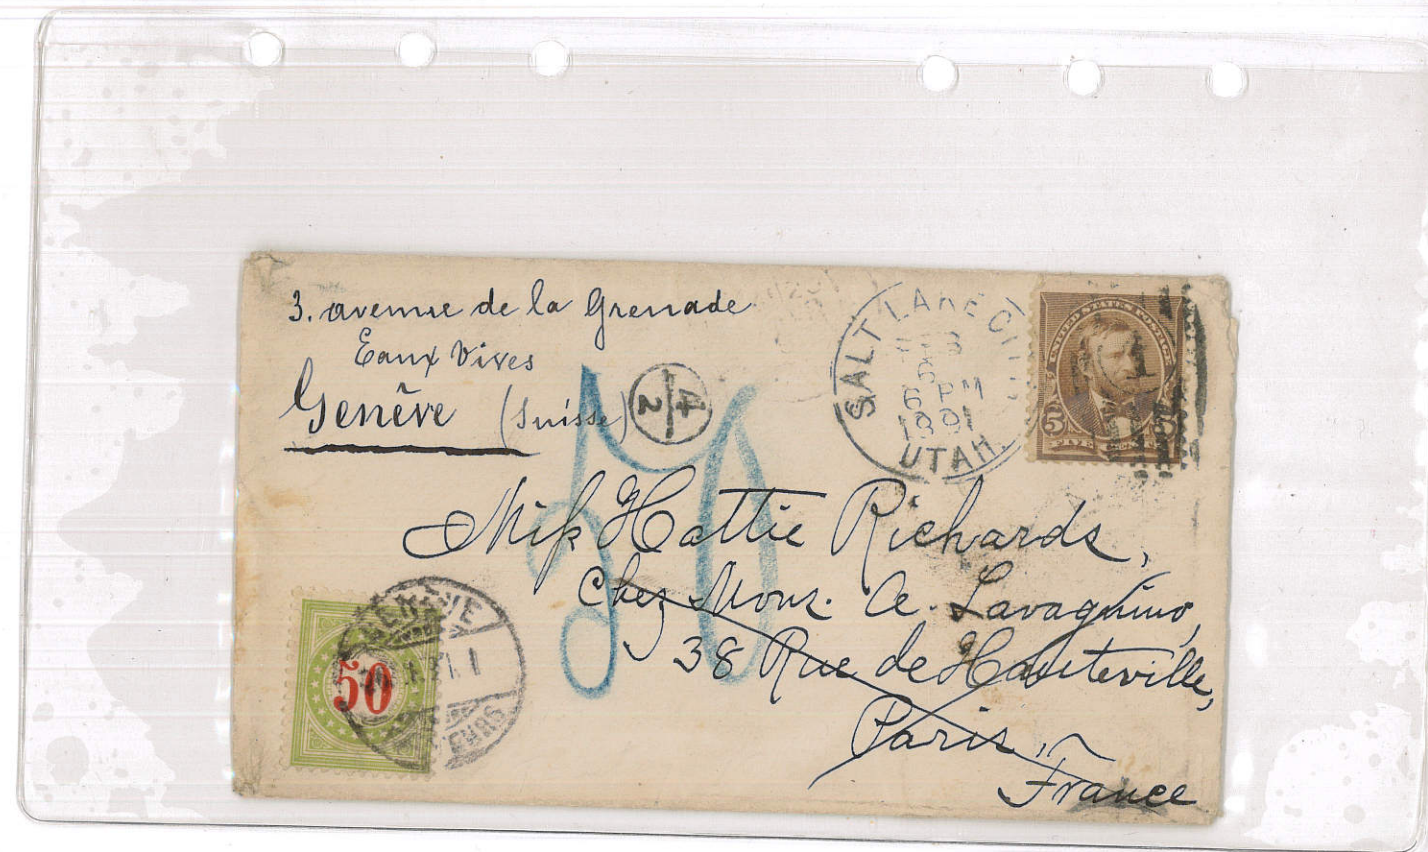 3. avenue de la Grenade
Eaux Vives
Genève (Suisse)
4
2
SALT LAKE CITY
6 PM
1891
UTAH.
UNITED STATES POSTAGE
5
50
Miss Hattie Richards,
Chez Mons. A. Lavagnino,
38 Rue de Hauteville,
Paris,
France
GENÈVE
50